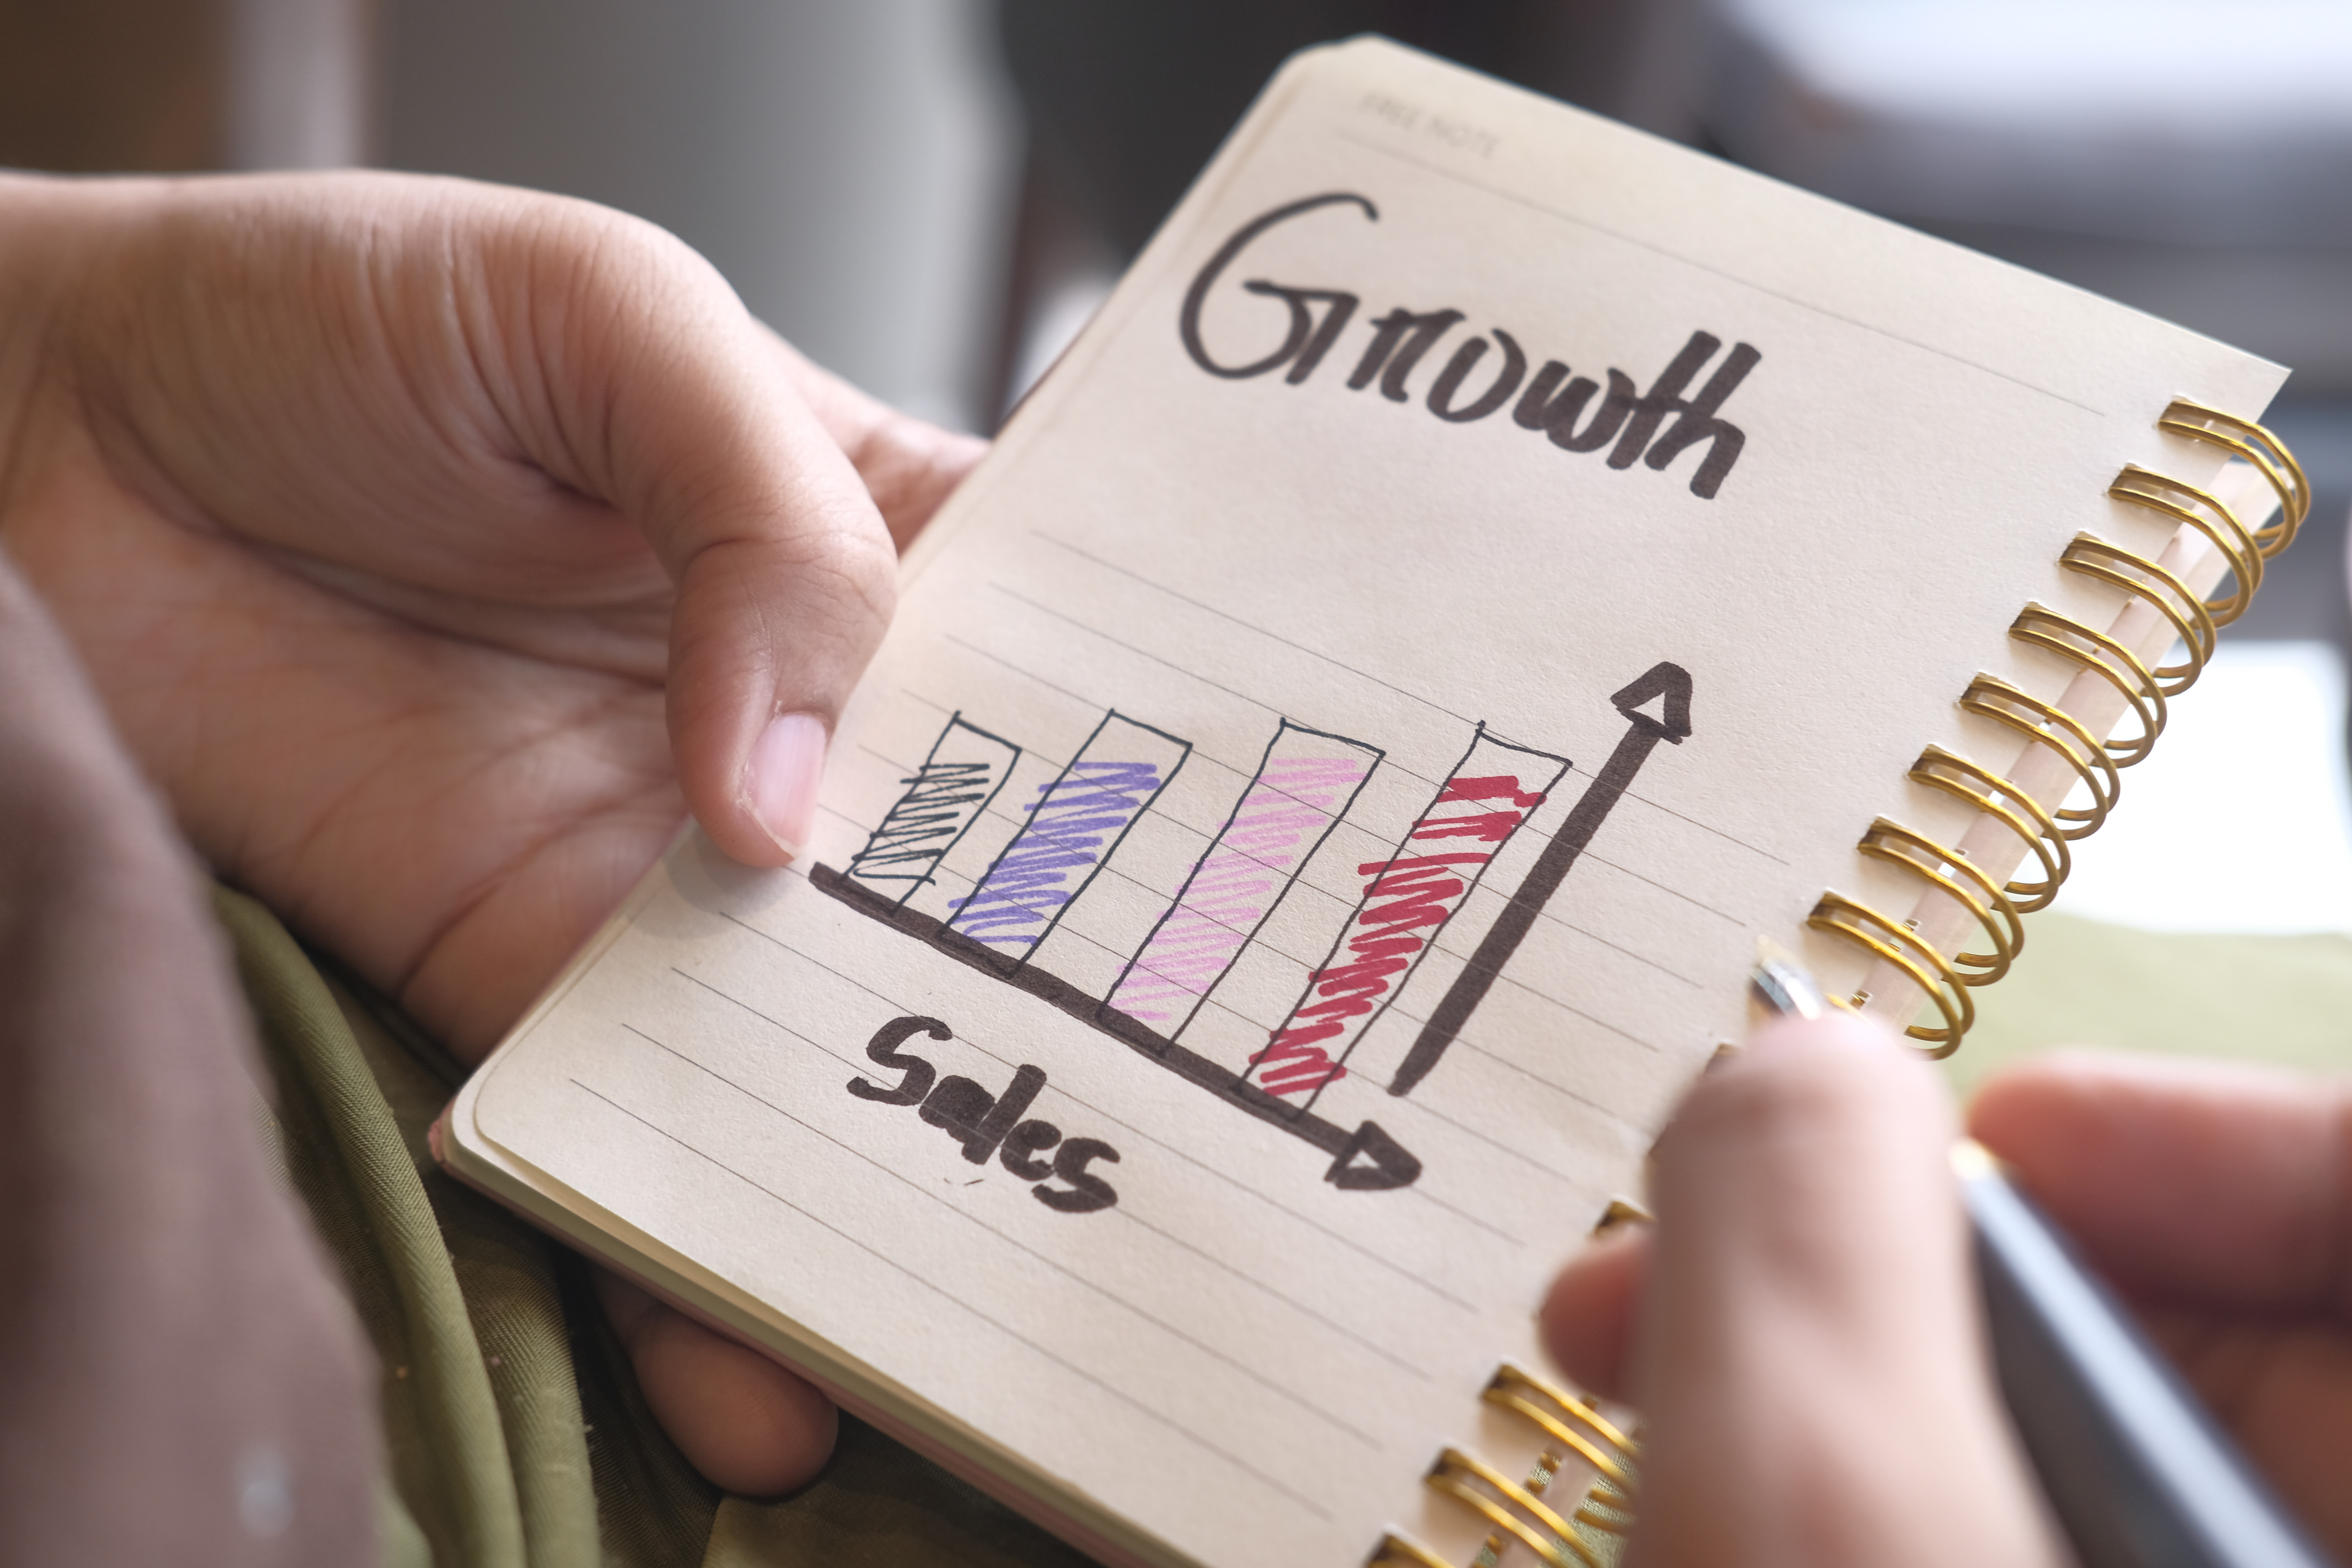 FREE NOTE
Growth
Sales